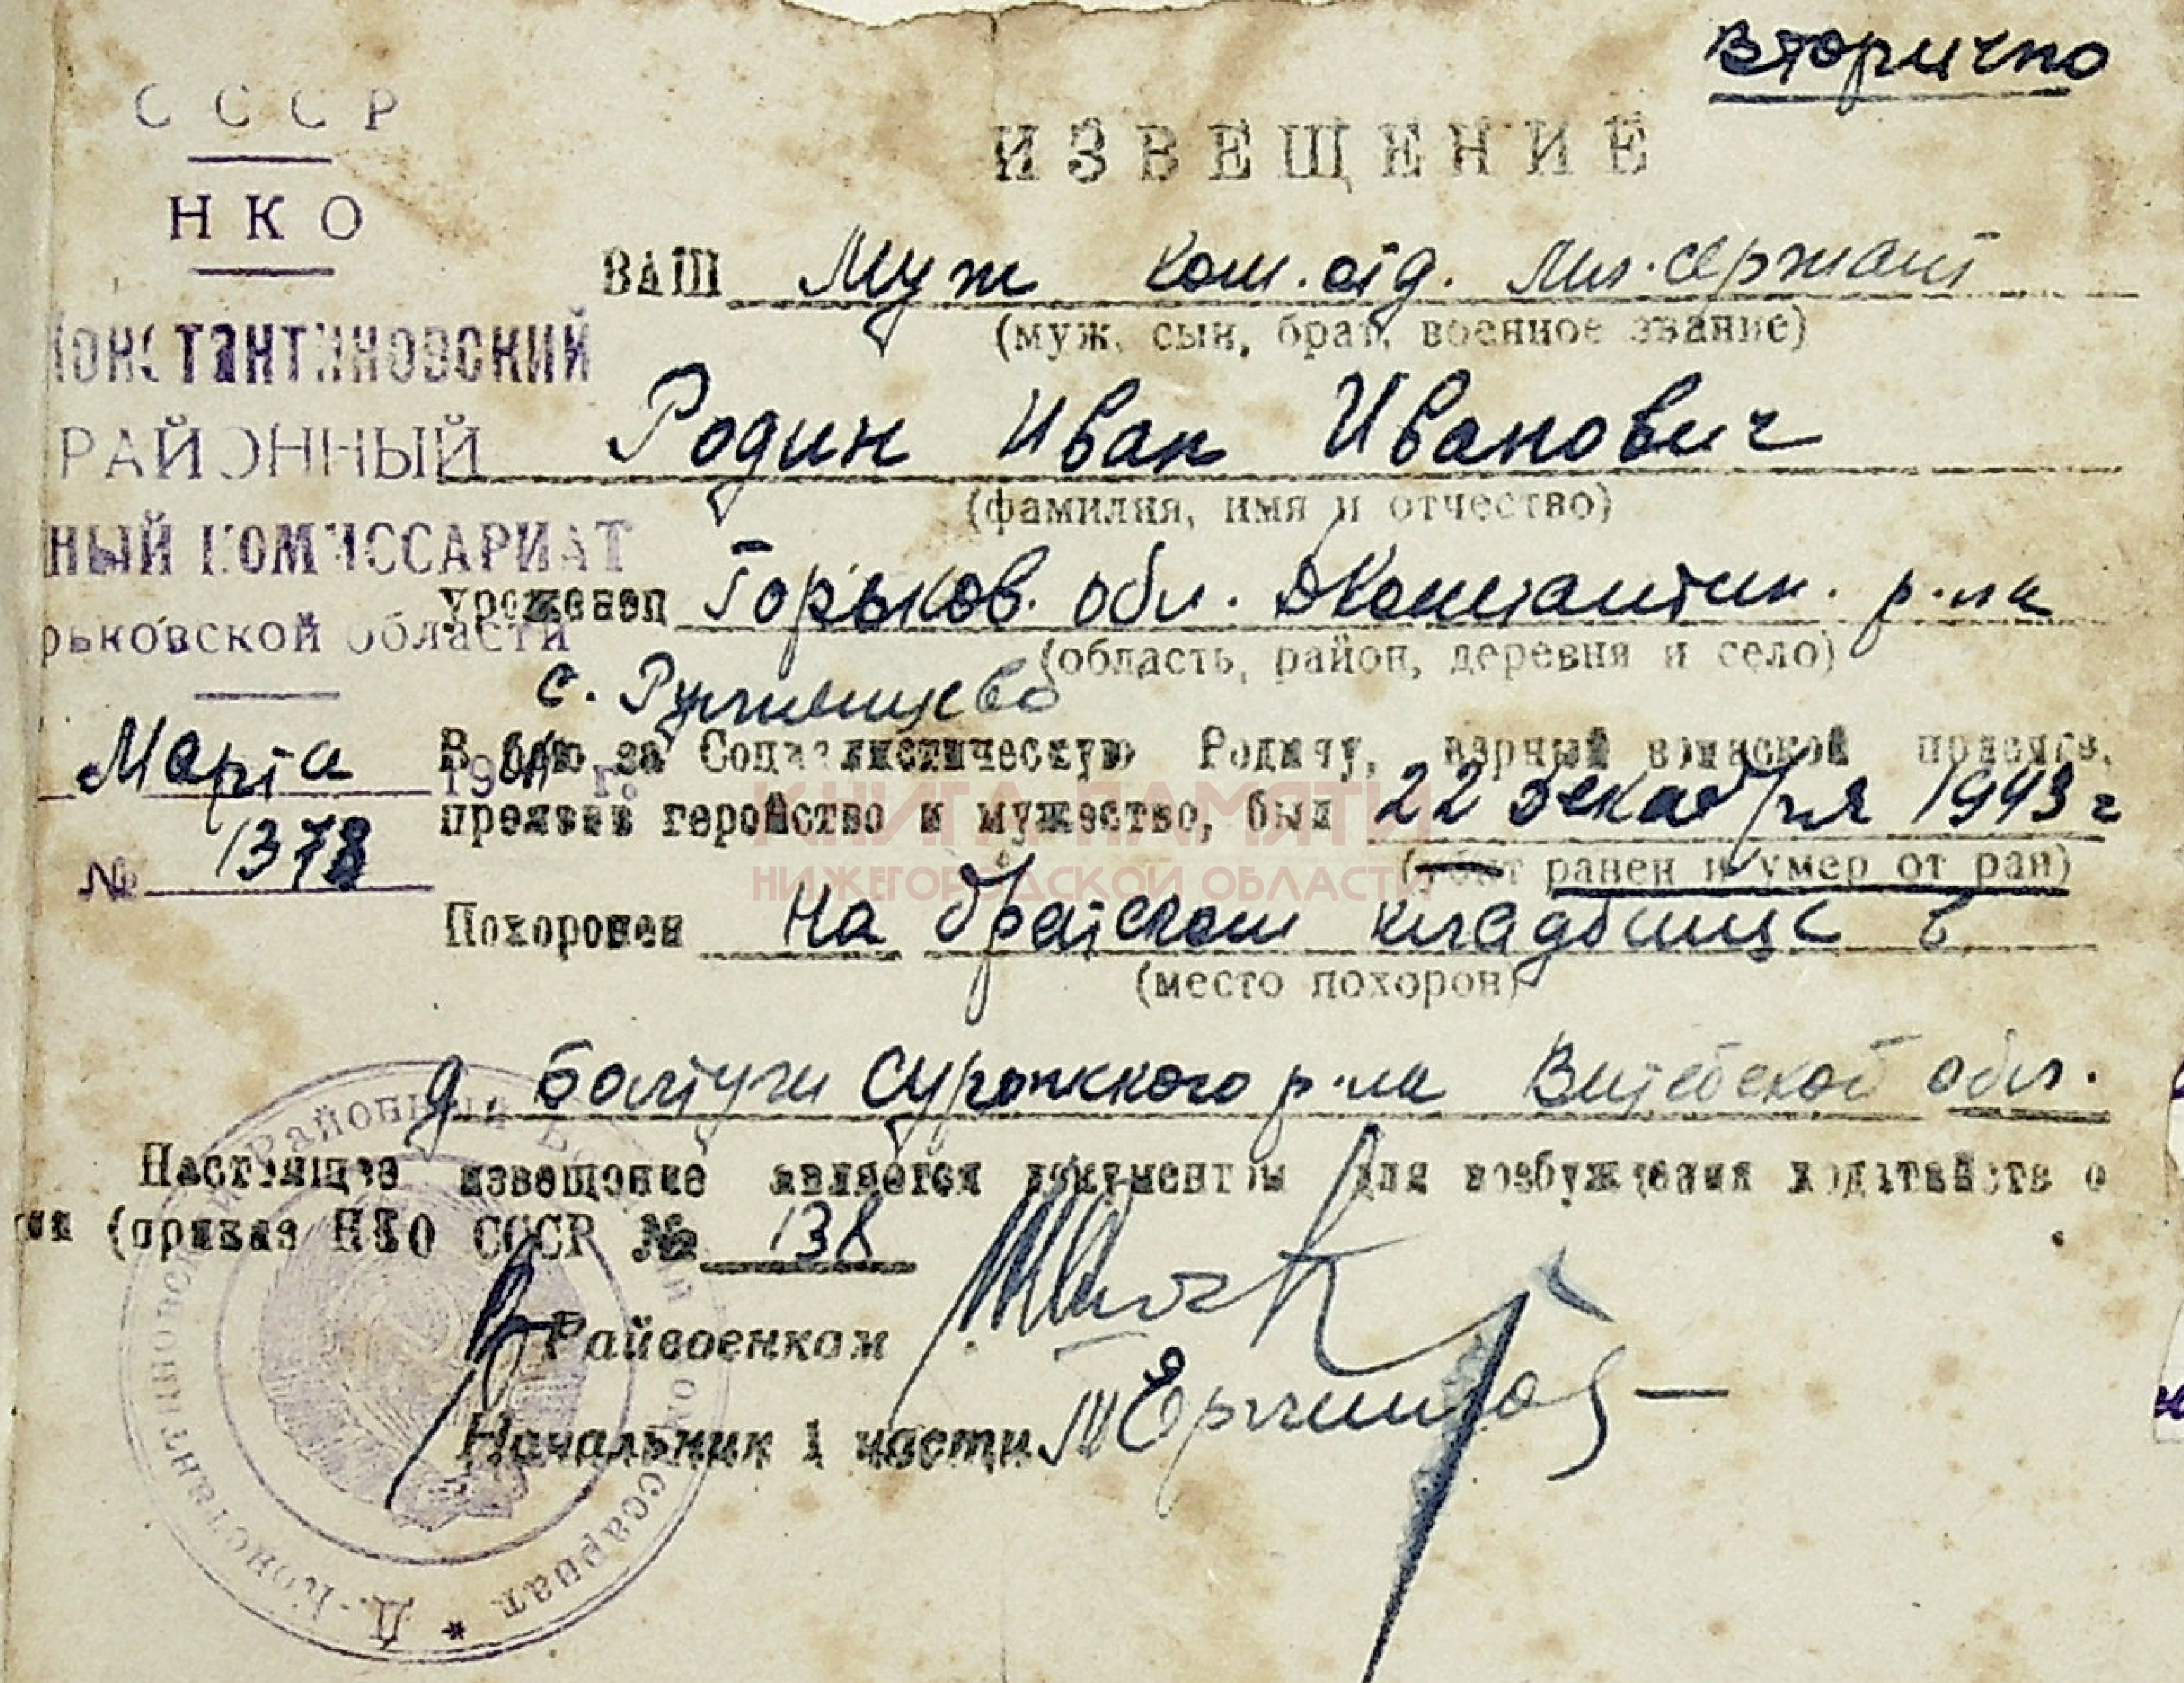 Вторично
СССР
НКО
Константиновский
РАЙОННЫЙ
НЫЙ КОМИССАРИАТ
рьковской области
Марта 194 г.
№ 1378
ИЗВЕЩЕНИЕ
ВАШ Муж ком. отд. мл. сержант
(муж, сын, брат, военное звание)
Родин Иван Иванович
(фамилия, имя и отчество)
уроженец Горьков. обл. Д Константин. р-на
(область, район, деревня и село)
с.
В бою за Социалистическую Родину, верный воинской присяге,
проявив геройство и мужество, был 22 декабря 1943 г
(убит ранен и умер от ран)
Похоронен на братском кладбище в
(место похорон)
д. Болтуги Суражского р-на Витебской обл.
Настоящее извещение является документом для возбуждения ходатайства о
(приказ НКО СССР № 138
Райвоенком
Начальник 1 части
Д.-Константиновский Районный Военный Комиссариат
КНИГА ПАМЯТИ
НИЖЕГОРОДСКОЙ ОБЛАСТИ